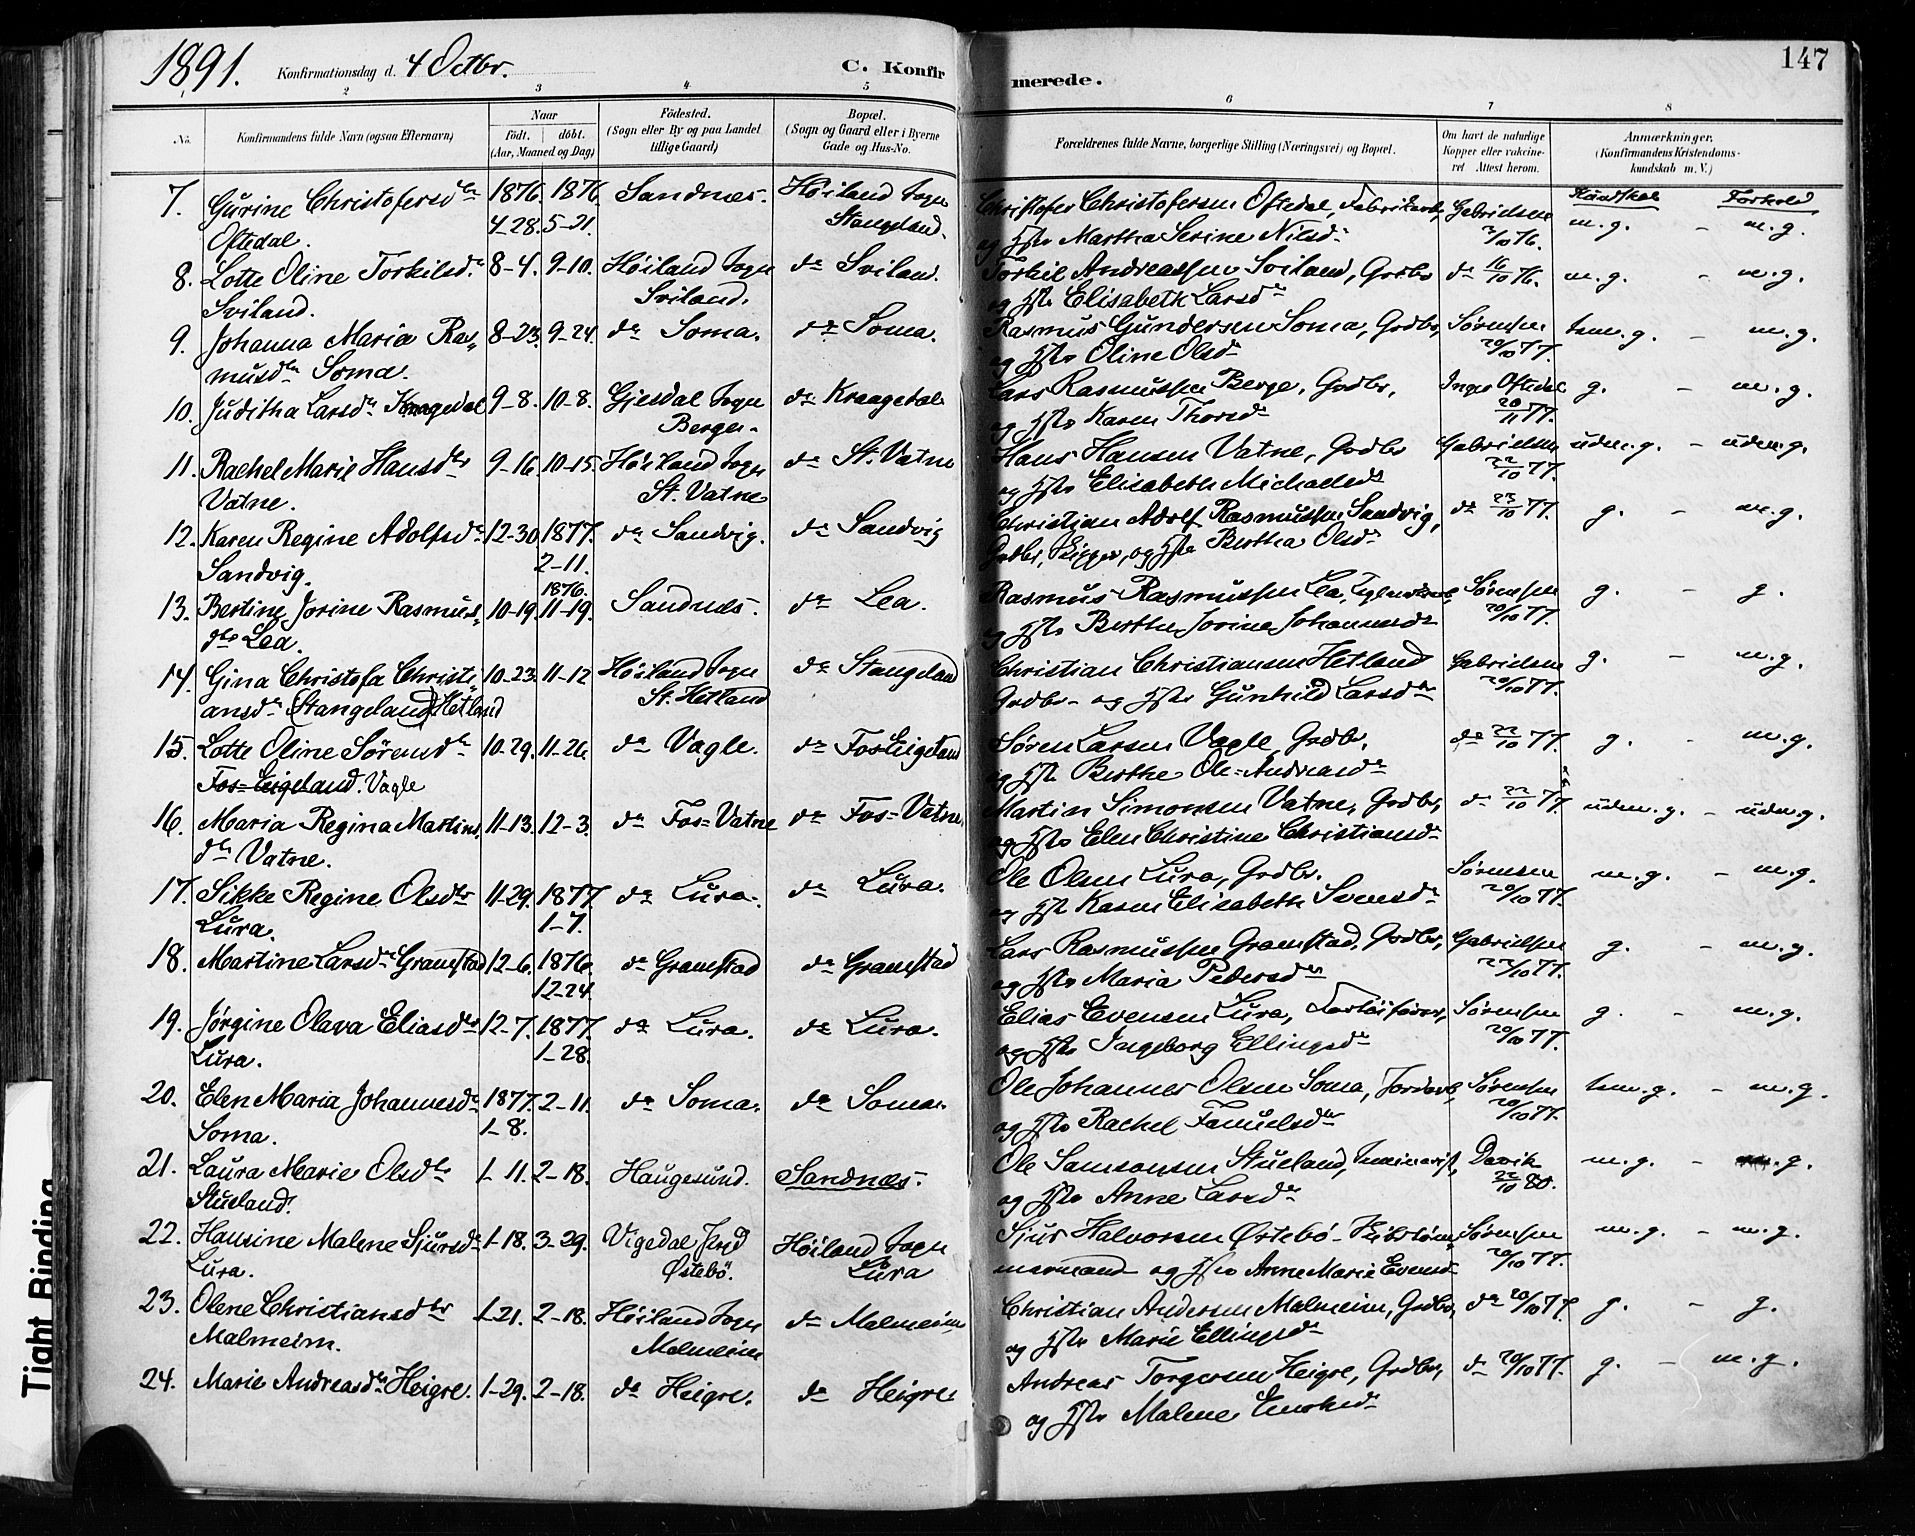 1891. Konfirmationsdag d. 4 Octbr. C. Konfirmerede. 147
2 3 4 5 6 7 8
No. Konfirmandens fulde Navn (ogsaa Efternavn) Naar født. døbt. (Aar, Maaned og Dag) Fødested. (Sogn eller By og paa Landet tillige Gaard) Bopæl. (Sogn og Gaard eller i Byerne Gade og Hus-No. Forældrenes fulde Navne, borgerlige Stilling (Næringsvei) og Bopæl. Om havt de naturlige Kopper eller vaccineret Attest herom. Anmærkninger, (Konfirmandens Kristendomskundskab m. V.)
Kundskab Forhold
7. Gurine Christofersdtr 1876. 1876. Sandnes. Höiland Sogn Christofer Christofersen Oftedal, Gabrielsen
Oftedal. 4-28. 5-21. Stangeland. og Hstr Martha Serine Nilsdr m.g. - m.g.
8. Lotte Oline Torkilsdr 8-4. 9-10. Höiland Sogn do Sviland. Torkil Andreassen Sviland, Grdbr do 16/10 76. m.g. - m.g.
Sviland. Sviland. og Hstr Elisabeth Larsdr
9. Johanna Maria Ras- 8-23. 9-24. do Soma. do Soma. Rasmus Gundersen Soma, Grdbr, Sörensen tem.g. - m.g.
musdtr Soma. og Hstr Oline Olsdr 20/10 77.
10. Juditha Larsdtr Kraagedal 9-8. 10-8. Gjesdal Sogn do Kraagedal Lars Rasmussen Berge, Grdbr, Inger Oftedal g. - m.g.
Berge. og Hstr Karen Thorsdr 20/11 77.
11. Rachel Marie Hansdtr 9-16. 10-15. Höiland Sogn do St. Vatne Hans Hansen Vatne, Grdbr Gabrielsen udm.g. - udm.g.
Vatne. St. Vatne og Hstr Elisabeth Michaelsdr 22/10 77.
12. Karen Regine Adolfsdr 12-30. 1877. do Sandvig. do Sandvig Christian Adolf Rasmussen Sandvig, do 23/10 77. g. - m.g.
Sandvig. 2-11. Grdbr, Skipper, og Hstr Bertha Olsdr
13. Bertine Jorine Rasmus- 10-19. 1876. 11-19. Sandnes. do Lea. Rasmus Rasmussen Lea, Sörensen g. - g.
dtr Lea. og Hstr Berthe Jorine Johannesdr 20/10 77.
14. Gina Christofa Christi- 10-23. 11-12 Höiland Sogn do Stangeland Christian Christiansen Hetland Gabrielsen g. - m.g.
ansdtr (Stangeland) Hetland St. Hetland Grdbr - og Hstr Gunhild Larsdtr 20/10 77.
15. Lotte Oline Sörensdtr 10-29. 11-26. do Vagle. do Fos Eigeland Sören Larsen Vagle, Grdbr, do 22/10 77. g. - m.g.
Fos-Eigeland. Vagle og Hstr Berthe Ole-Andreasdr
16. Maria Regina Martins- 11-13. 12-3. do Fos-Vatne do Fos-Vatne. Martin Simonsen Vatne, Grdbr, do 22/10 77. udm.g. - udm.g.
dtr Vatne. og Hstr Elen Christine Christiansdr
17. Sikke Regine Olsdtr 11-29. 1877. do Lura. do Lura. Ole Olsen Lura, Grdbr. Sörensen m.g. - m.g.
Lura. 1-7. og Hstr Karen Elisabeth Svensdr 20/10 77.
18. Martine Larsdr Gramstad 12-6. 1876. do Gramstad do Gramstad Lars Rasmussen Gramstad, Grdbr, Gabrielsen g. - m.g.
12-24. og Hstr Maria Pedersdtr 22/10 77.
19. Jörgine Olava Eliasdtr 12-7. 1877. do Lura. do Lura. Elias Evensen Lura, Sörensen g. - m.g.
Lura. 1-28. og Hstr Ingeborg Ellingsdr 20/10 77.
20. Elen Maria Johannesdr 1877. 2-11. do Soma. do Soma. Ole Johannes Olsen Soma, Sörensen tem.g. - m.g.
Soma. 1-8. og Hstr Rachel Samuelsdtr 20/10 77.
21. Laura Marie Olsdtr 1-11. 2-18. Haugesund. Sandnes. Ole Samsonsen Stueland, m.g. - g.
Stueland. og Hstr Anne Larsdr 22/10 80.
22. Hansine Malene Sjursdr 1-18. 3-29. Vigedal Höiland Sogn Sjur Halvorsen Östebö - Sörensen m.g. - m.g.
Lura. Östebö. Lura og Hstr Anne Marie Evensdr 20/10 77.
23. Olene Christiansdtr 1-21. 2-18. Höiland Sogn do Malmeim Christian Andersen Malmeim, Grdbr, do 20/10 77. g. - g.
Malmeim. Malmeim og Hstr Marie Ellingsdr
24. Marie Andreasdtr Heigre. 1-29. 2-18. do Heigre. do Heigre Andreas Torgersen Heigre, Grdbr, do 20/10 77. g. - m.g.
og Hstr Malene
Tight Binding